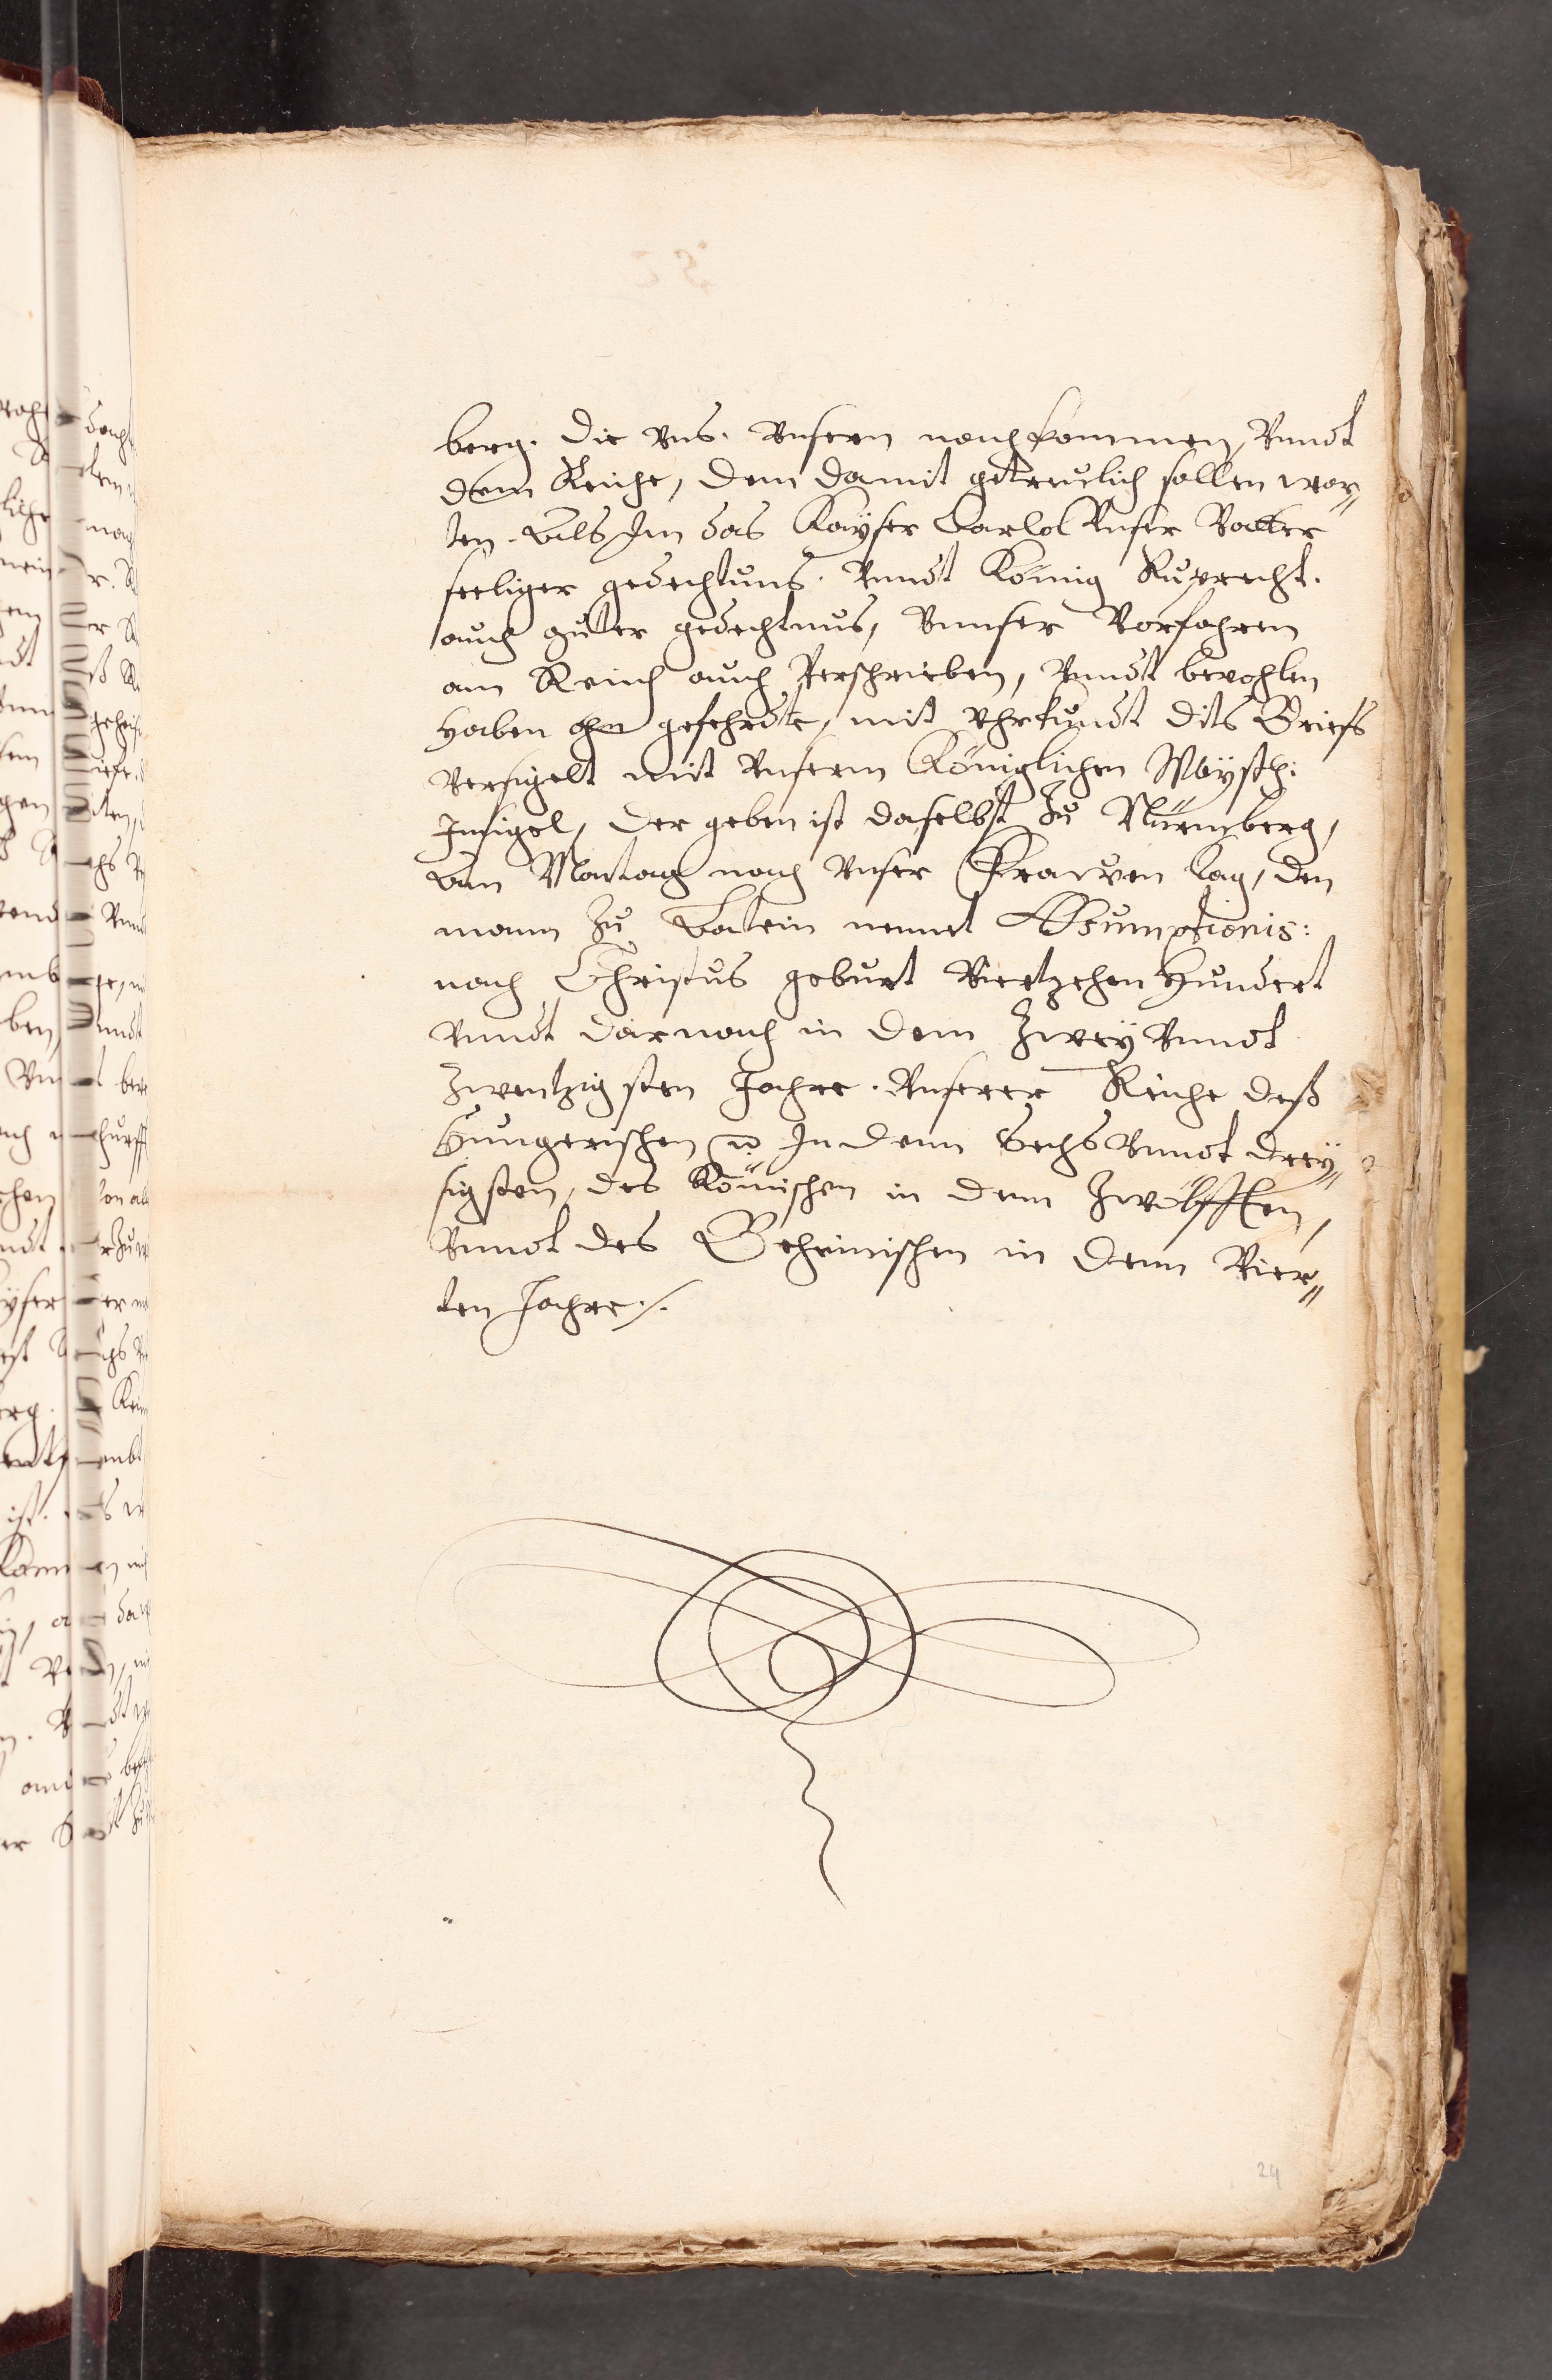 berg. Die Vns. Vnsern nachkommen, Vnndt
dem Reiche, dem damit getreulich sollen war„
ten. Als Im das Kayser Carlol Vnser Vatter
seeliger gedechtnus. Vnndt König Ruprecht.
auch guter gedechtnus, Vnnser Vorfahren
am Reich auch Verschrieben, Vnndt bevohlen
haben ohn gefehrdte, mit Vhrkundt dits Briefs
Versigelt mit Vnserm Königlichen Mayesth:
Insigel, Der geben ist daselbst Zu Nürmberg,
Am Montag nach Vnser Frawen tag, den
mann Zu Latein nennet Assumptionis:
nach Christus geburt Viertzehen Hundert
Vnndt darnach in dem Zwey Vnndt
Zwentzigsten Jahre. Vnserer Reiche deß
Hungerischen In denn Sechs Vnndt drey„
sigsten, des Römischen in denn Zwölfften,
Vnndt des Behemischen in denn Vier„
ten Jahre./.
24